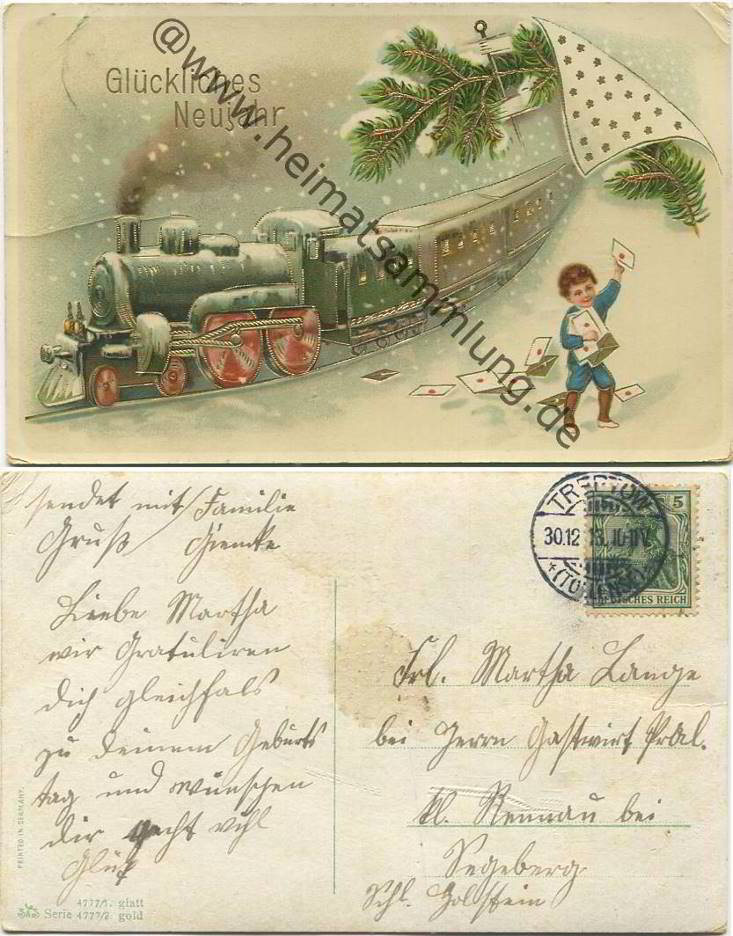 Glückliches
Neujahr
@www.heimatsammlung.de
sendet mit Familie
Gruß Giemke
Liebe Martha
wir Gratuliren
dich gleichfals
zu deinem Geburts
tag und wünschen
dir recht vihl
Glük
PRINTED IN GERMANY.
4777/1. glatt
Serie 4777/2. gold
TREPTOW
30.12 13. 10-11V.
5
DEUTSCHES REICH
Frl. Martha Lange
bei Herrn Gastwirt
kl. Rennau bei
Segeberg
Schl. Holstein